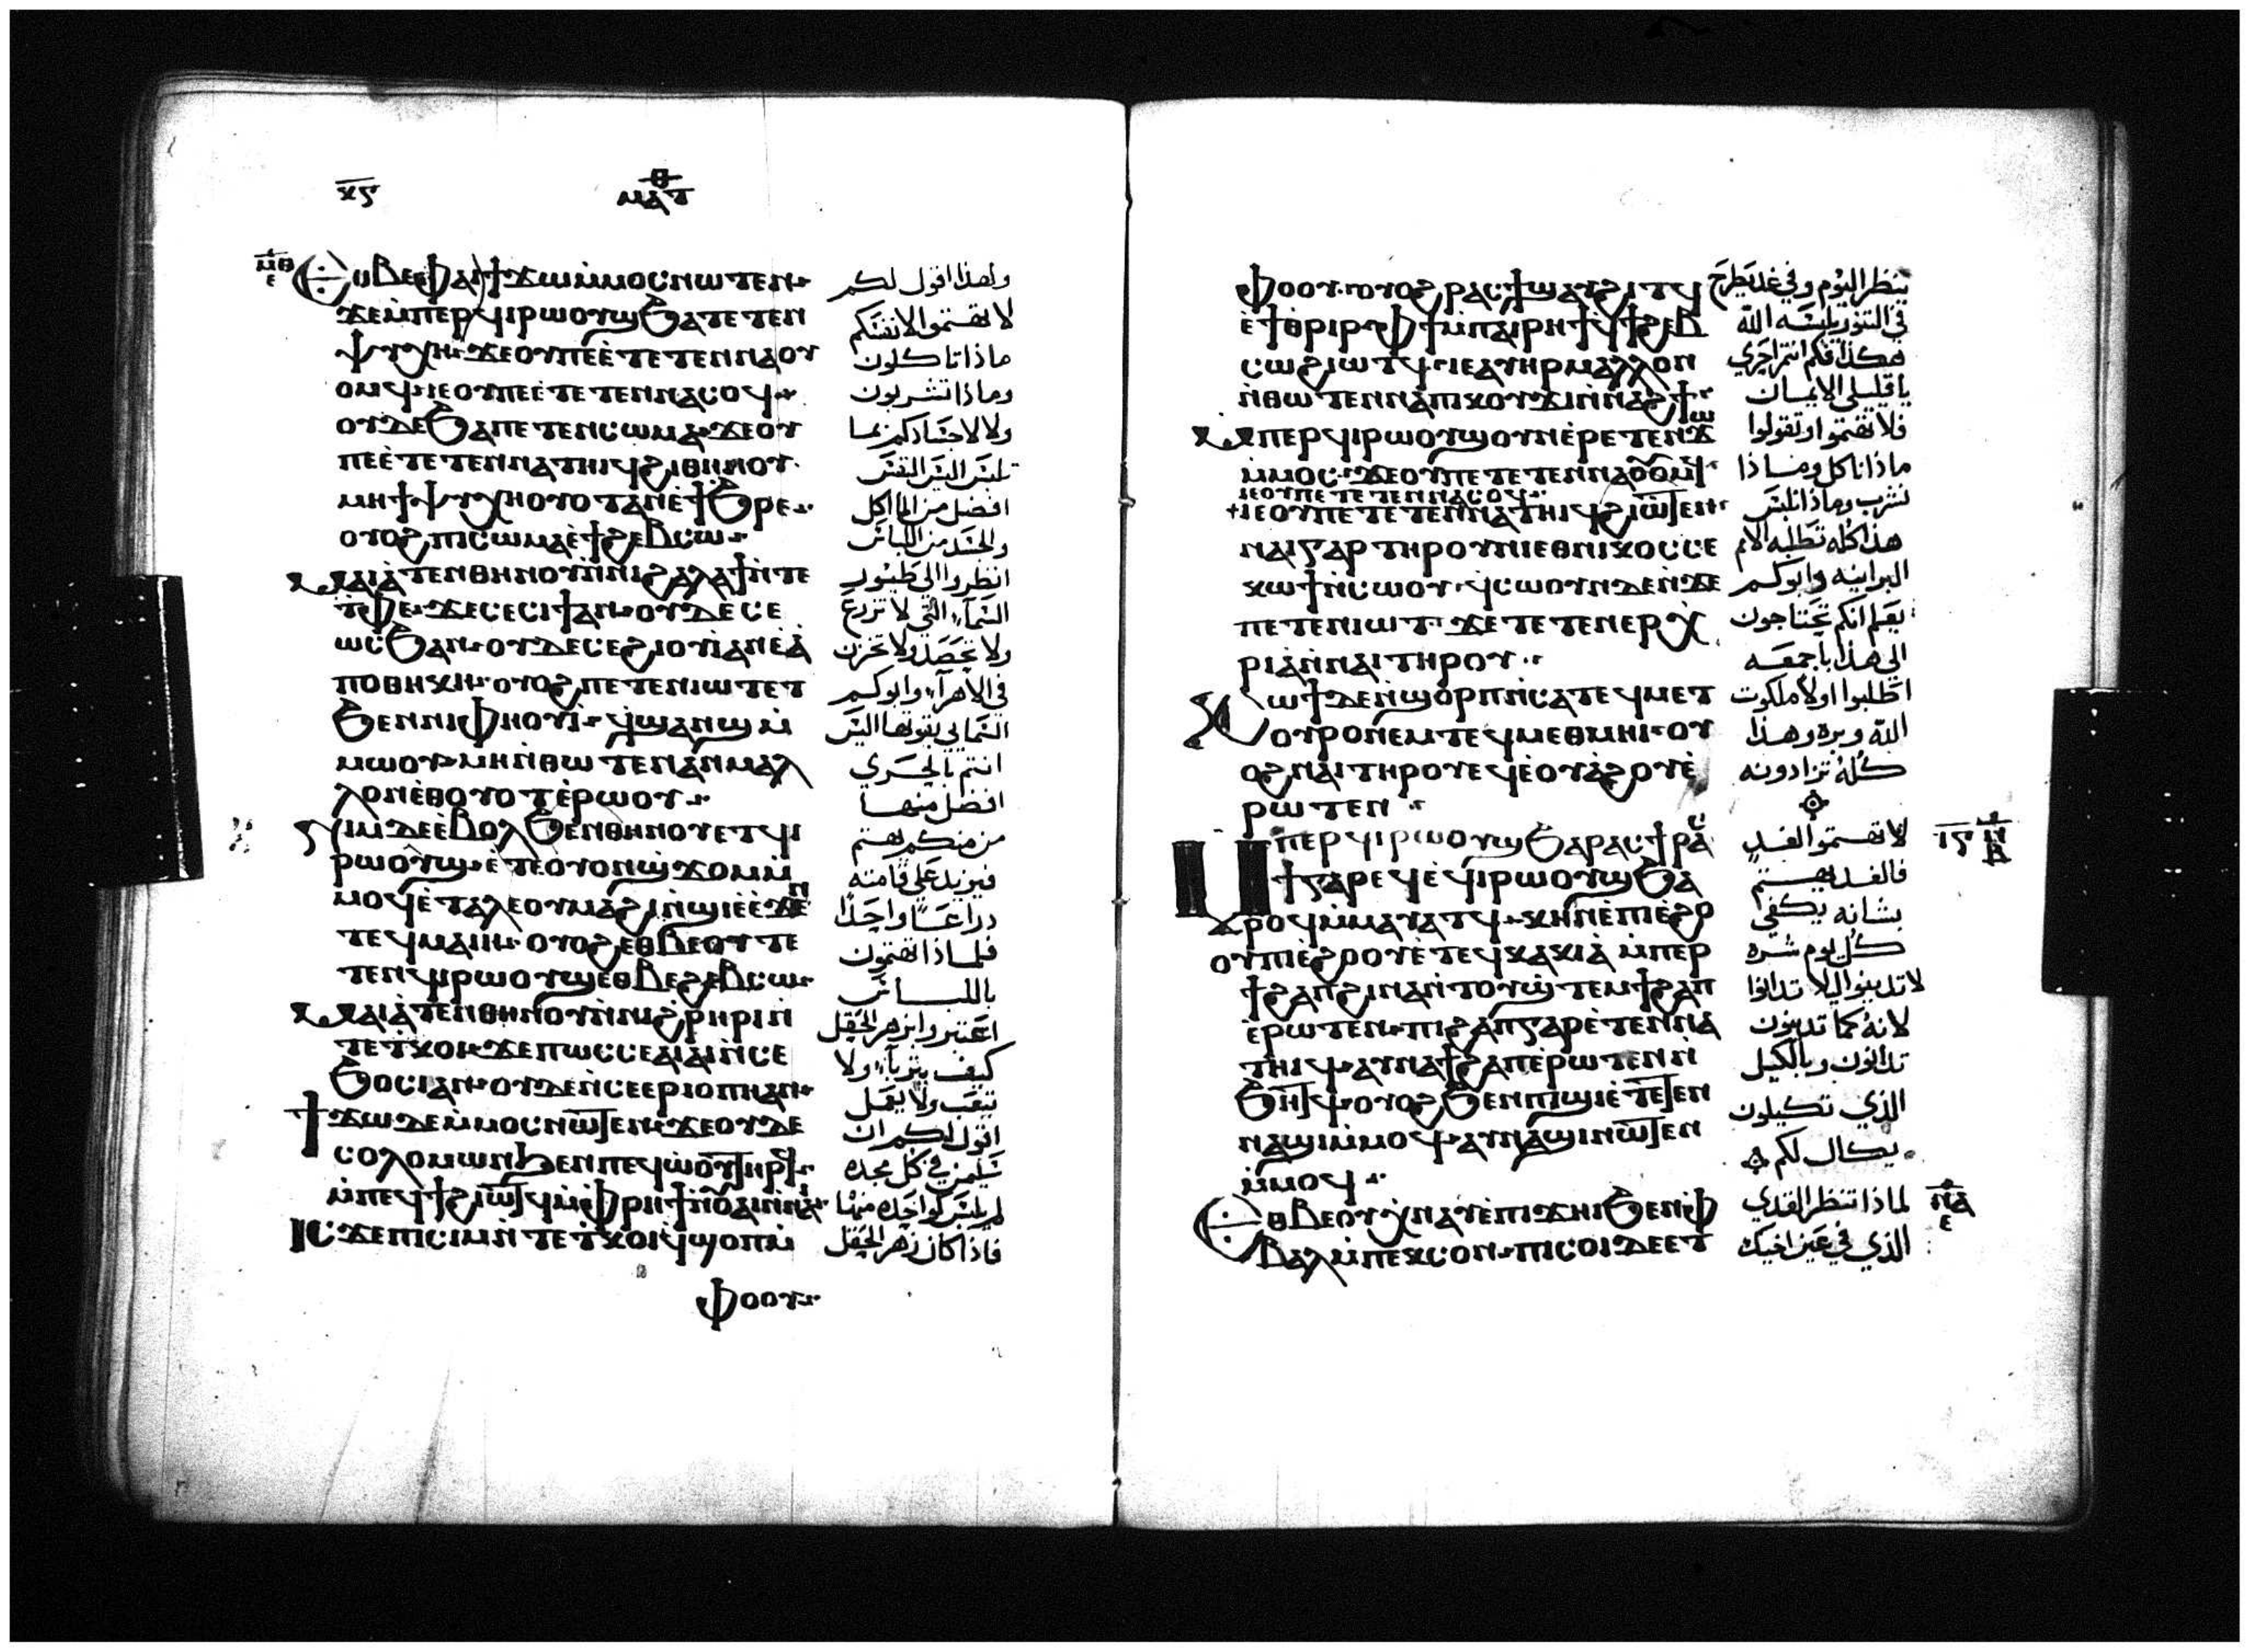 ⲕⲋ
ⲙⲁⲧ
ⲙⲑ
ⲉ
ⲉⲑⲃⲉⲫⲁⲓϯϫⲱⲙ̀ⲙⲟⲥⲛⲱⲧⲉⲛ
ϫⲉⲙ̀ⲡⲉⲣϥⲓⲣⲱⲟⲩϣϧⲁⲧⲉⲧⲉⲛ
ⲯⲩⲭⲏ ϫⲉⲟⲩⲡⲉⲉ̀ⲧⲉⲧⲉⲛⲛⲁⲟⲩ
ⲟⲙϥ ⲓⲉⲟⲩⲡⲉⲉ̀ⲧⲉⲧⲉⲛⲛⲁⲥⲟϥ
ⲟⲩⲇⲉϧⲁⲡⲉⲧⲉⲛⲥⲱⲙⲁ ϫⲉⲟⲩ
ⲡⲉⲉ̀ⲧⲉⲧⲉⲛⲛⲁⲧⲏⲓϥϩⲓⲑⲏⲛⲟⲩ
ⲙⲏϯⲯⲩⲭⲏⲟⲩⲟⲧⲁⲛⲉ̀ϯϧⲣⲉ
ⲟⲩⲟϩⲡⲓⲥⲱⲙⲁⲉ̀ϯϩⲉⲃⲥⲱ
ⲙⲁⲓⲁ̀ⲧⲉⲛⲑⲏⲛⲟⲩⲛ̀ⲛⲓϩⲁⲗⲁϯⲛ̀ⲧⲉ
ⲧ̀ⲫⲉ ϫⲉⲥⲉⲥⲓϯⲁⲛ ⲟⲩⲇⲉⲥⲉ
ⲱⲥϧⲁⲛ ⲟⲩⲇⲉⲥⲉϩⲓⲟⲩⲓ̀ⲁⲛⲉ̀ⲁ̀
ⲡⲟⲑⲏⲕⲏ ⲟⲩⲟϩⲡⲉⲧⲉⲛⲓⲱⲧⲉⲧ
ϧⲉⲛⲛⲓⲫⲏⲟⲩⲓ̀ ϥ̀ϣⲁⲛϣⲙ̀
ⲙⲱⲟⲩ ⲙⲏⲛ̀ⲑⲱⲧⲉⲛⲁⲛⲙⲁⲗ
ⲗⲟⲛⲉ̀ⲑⲟⲩⲟⲧⲉ̀ⲣⲱⲟⲩ
ⲛⲓⲙⲇⲉⲉ̀ⲃⲟⲗϧⲉⲛⲑⲏⲛⲟⲩⲉⲧϥⲓ
ⲣⲱⲟⲩϣ ⲉ̀ⲧⲉⲟⲩⲟⲛϣ̀ϫⲟⲙⲙ̀
ⲙⲟϥⲉ̀ⲧⲁⲗⲉⲟⲩⲙⲁϩⲓⲛ̀ϣⲓⲏⲉ̀ϫⲉⲛ
ⲧⲉϥⲙⲁⲓⲏ ⲟⲩⲟϩⲉⲑⲃⲉⲟⲩⲧⲉ
ⲧⲉⲛϥⲓⲣⲱⲟⲩϣⲉⲑⲃⲉϩⲉⲃⲥⲱ
ⲙⲁⲓⲁ̀ⲧⲉⲛⲑⲏⲛⲟⲩⲛ̀ⲛⲓϩⲣⲏⲣⲓⲛ̀
ⲧⲉⲧ̀ⲕⲟⲓ ϫⲉⲡⲱⲥⲥⲉⲁⲓⲁⲓⲛ̀ⲥⲉ
ϧⲟⲥⲓⲁⲛ ⲟⲩⲇⲉⲛ̀ⲥⲉⲉⲣⲓⲟⲡⲏⲁⲛ
ϯϫⲱⲇⲉⲙ̀ⲙⲟⲥⲛⲱⲧⲉⲛ ϫⲉⲟⲩⲇⲉ
ⲥⲟⲗⲟⲙⲱⲛϧⲉⲛⲡⲉϥⲱ̀ⲟⲩⲧⲏⲣϥ
ⲙ̀ⲡⲉϥϯϩⲓⲱⲧϥⲙ̀ⲫⲣⲏϯⲛ̀ⲟⲩⲁⲓⲛ̀ⲛⲁⲓ
ⲓⲥϫⲉⲡⲓⲥⲓⲙⲛ̀ⲧⲉⲧ̀ⲕⲟⲓϥϣⲟⲡⲙ̀
ⲫⲟⲟⲩ
ولهذا اقول لكم
لا تهتموا لانفسكم
ماذا تاكلون
وماذا تشربون
ولا لاجسادكم بما
تلبس اليس النفس
افضل من الماكل
والجسد من اللباس
انظروا الي طيور
السماء التي لا تزرع
ولا تحصد ولا تخزن
في الاهراء وابوكم
السماي يقوتها اليس
انتم بالحري
افضل منها
من منكم يهتم
فيزيد علي قامته
دراعًا واحدًا
فلماذا تهتمون
باللباس
اعتبروا بزهر الحقل
كيف يتربا ولا
يتعب ولا يعمل
اقول لكم ان
سليمن في كل مجده
لم يلبس كواحده منها
فاذا كان زهر الحقل
ⲫⲟⲟⲩ ⲟⲩⲟϩⲣⲁⲥϯϣⲁⲩϩⲓⲧϥ
ⲉ̀ϯⲑⲣⲓⲣ ⲫϯⲙ̀ⲡⲁⲓⲣⲏϯϥ̀ϯϩⲉⲃ
ⲥⲱϩⲓⲱⲧϥ ⲓⲉⲁⲩⲏⲣⲙⲁⲗⲗⲟⲛ
ⲛ̀ⲑⲱⲧⲉⲛⲛⲁⲡⲓⲕⲟⲩϫⲓⲛ̀ⲛⲁϩϯ
ⲙ̀ⲡⲉⲣϥⲓⲣⲱⲟⲩϣⲟⲩⲛⲉ̀ⲣⲉⲧⲉⲛϫⲱ
ⲙ̀ⲙⲟⲥ ϫⲉⲟⲩⲡⲉⲧⲉⲧⲉⲛⲛⲁⲟⲩⲟⲙϥ
ⲓⲉⲟⲩⲡⲉⲧⲉⲧⲉⲛⲛⲁⲥⲟϥ
ⲓⲉⲟⲩⲡⲉⲧⲉⲧⲉⲛⲛⲁⲧⲏⲓϥϩⲓⲱⲧⲉⲛ
ⲛⲁⲓⲅⲁⲣⲧⲏⲣⲟⲩⲛⲓⲉⲑⲛⲓⲕⲟⲥⲥⲉ
ⲕⲱϯⲛ̀ⲥⲱⲟⲩ ϥ̀ⲥⲱⲟⲩⲛⲇⲉⲛ̀ϫⲉ
ⲡⲉⲧⲉⲛⲓⲱⲧ ϫⲉⲧⲉⲧⲉⲛⲉⲣⲭ̀
ⲣⲓⲁⲛ̀ⲛⲁⲓⲧⲏⲣⲟⲩ
ⲕⲱϯⲇⲉⲛ̀ϣⲟⲣⲡⲛ̀ⲥⲁⲧⲉϥⲙⲉⲧ
ⲟⲩⲣⲟⲛⲉⲙⲧⲉϥⲙⲉⲑⲙⲏⲓ ⲟⲩ
ⲟϩⲛⲁⲓⲧⲏⲣⲟⲩⲉϥⲉ̀ⲟⲩⲁϩⲟⲩⲉ̀
ⲣⲱⲧⲉⲛ
ⲙ̀ⲡⲉⲣϥⲓⲣⲱⲟⲩϣϧⲁⲣⲁⲥϯⲣⲁⲥ
ϯⲅⲁⲣⲉϥⲉ̀ϥⲓⲣⲱⲟⲩϣϧⲁ
ⲣⲟϥⲙ̀ⲙⲁⲩⲁⲧϥ ⲕⲏⲛⲉ̀ⲡⲓⲉ̀ϩⲟ
ⲟⲩⲡⲓⲉ̀ϩⲟⲟⲩⲉ̀ⲧⲉϥⲕⲁⲕⲓⲁ̀ ⲙ̀ⲡⲉⲣ
ϯϩⲁⲡϩⲓⲛⲁⲛ̀ⲧⲟⲩϣ̀ⲧⲉⲙϯϩⲁⲡ
ⲉ̀ⲣⲱⲧⲉⲛ ⲡⲓϩⲁⲡⲅⲁⲣⲉ̀ⲧⲉⲛⲛⲁ
ⲧⲏⲓϥ ⲁⲩⲛⲁϯϩⲁⲡⲉ̀ⲣⲱⲧⲉⲛⲛ̀
ϧⲏⲧϥ ⲟⲩⲟϩϧⲉⲛⲡⲓϣⲓⲉ̀ⲧⲉⲧⲉⲛ
ⲛⲁϣⲓⲙ̀ⲙⲟϥ ⲁⲩⲛⲁϣⲓⲛⲱⲧⲉⲛ
ⲙ̀ⲙⲟϥ
ⲉⲑⲃⲉⲟⲩⲭ̀ⲛⲁⲩⲉ̀ⲡⲓϫⲏⲓϧⲉⲛⲫ
ⲃⲁⲗⲙ̀ⲡⲉⲕⲥⲟⲛ ⲡⲓⲥⲟⲓⲇⲉⲉⲧ
ينظر اليوم وفي غد يطرح
في التنور يلبسه الله
هكذا فكم انتم احري
يا قليلي الايمان
فلا تهتموا وتقولوا
ماذا ناكل وماذا
نشرب وماذا نلبس
هذا كله تطلبه الامم
البرانيه وابوكم
يعلم انكم تحتاجون
الي هذا باجمعه
اطلبوا اولا ملكوت
الله وبره وهذا
كله تزادونه
لا تهتموا لغد
فالغد يهتم
بشانه يكفي
كل يوم شره
لا تدينوا ليلا تدانوا
لانه كما تدينون
تدانون وبالكيل
الذي تكيلون
يكال لكم
لماذا تنظر القذي
الذي في عين اخيك
ⲓⲋ
ⲛ
ⲃ
ⲛⲁ
ⲉ